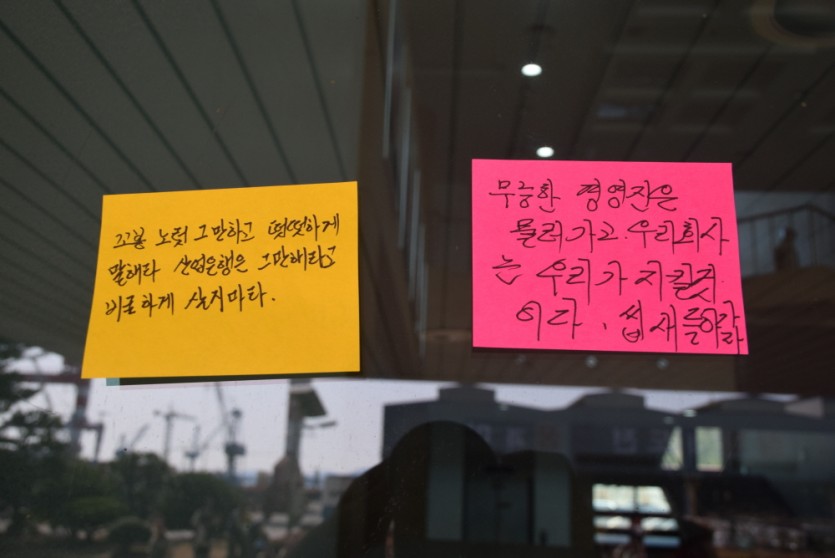 꼬봉 노릇 그만하고 떳떳하게
말해라 산업은행은 그만해라고
비굴하게 살지마라.
무능한 경영진은
물러가고. 우리회사
는 우리가 지킬것
이다, 씹새들아